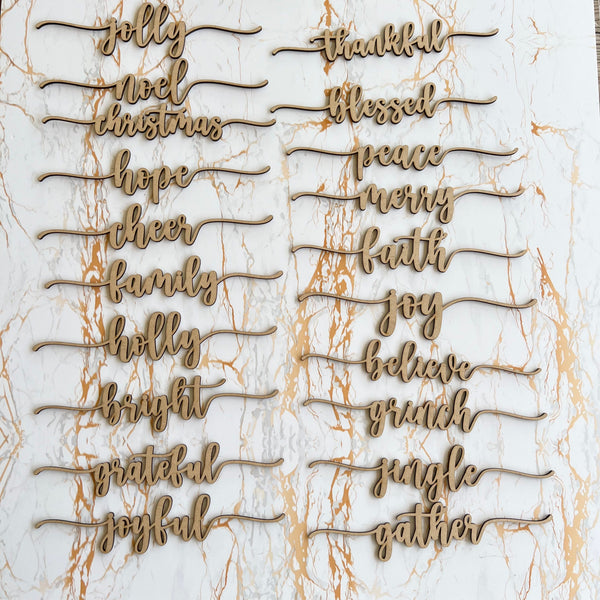 jolly
noel
christmas
hope
cheer
family
holly
bright
grateful
joyful
thankful
blessed
peace
merry
faith
joy
believe
grinch
jingle
gather